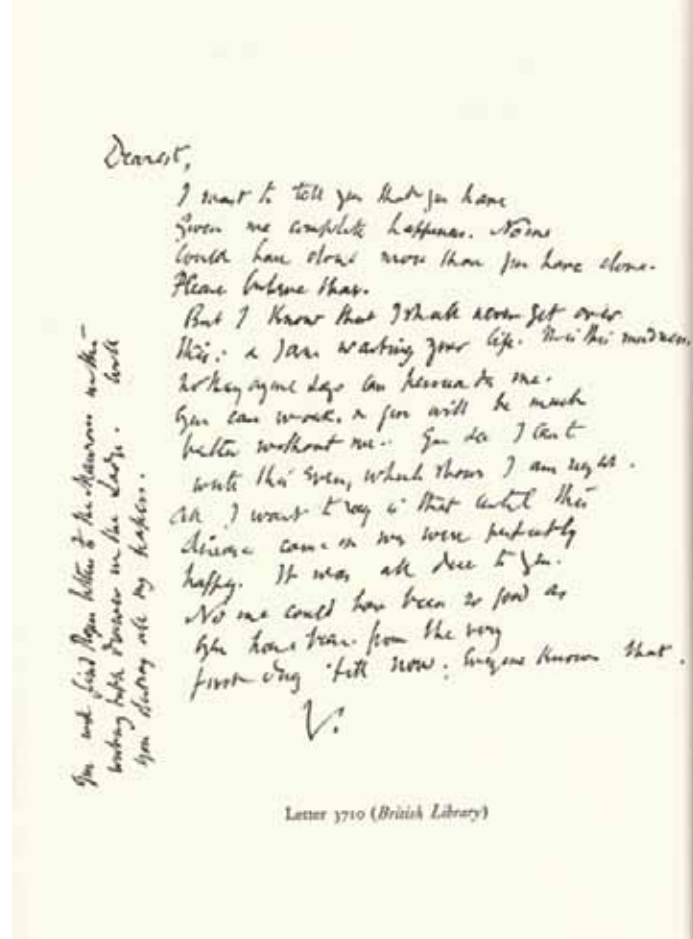 Dearest,
I want to tell you that you have
given me complete happiness. No one
could have done more than you have done.
Please believe that.
But I know that I shall never get over
this: & I am wasting your life. It is this madness.
Nothing anyone says can persuade me.
You can work, & you will be much
better without me. You see I can't
write this even, which shows I am right.
All I want to say is that until this
disease came on we were perfectly
happy. It was all due to you.
No one could have been so good as
you have been. from the very
first day till now. Everyone knows that.
V.
You will find Roger's letters to the Maurons in the
writing table drawer in the Lodge. Will
you destroy all my papers.
Letter 3710 (British Library)